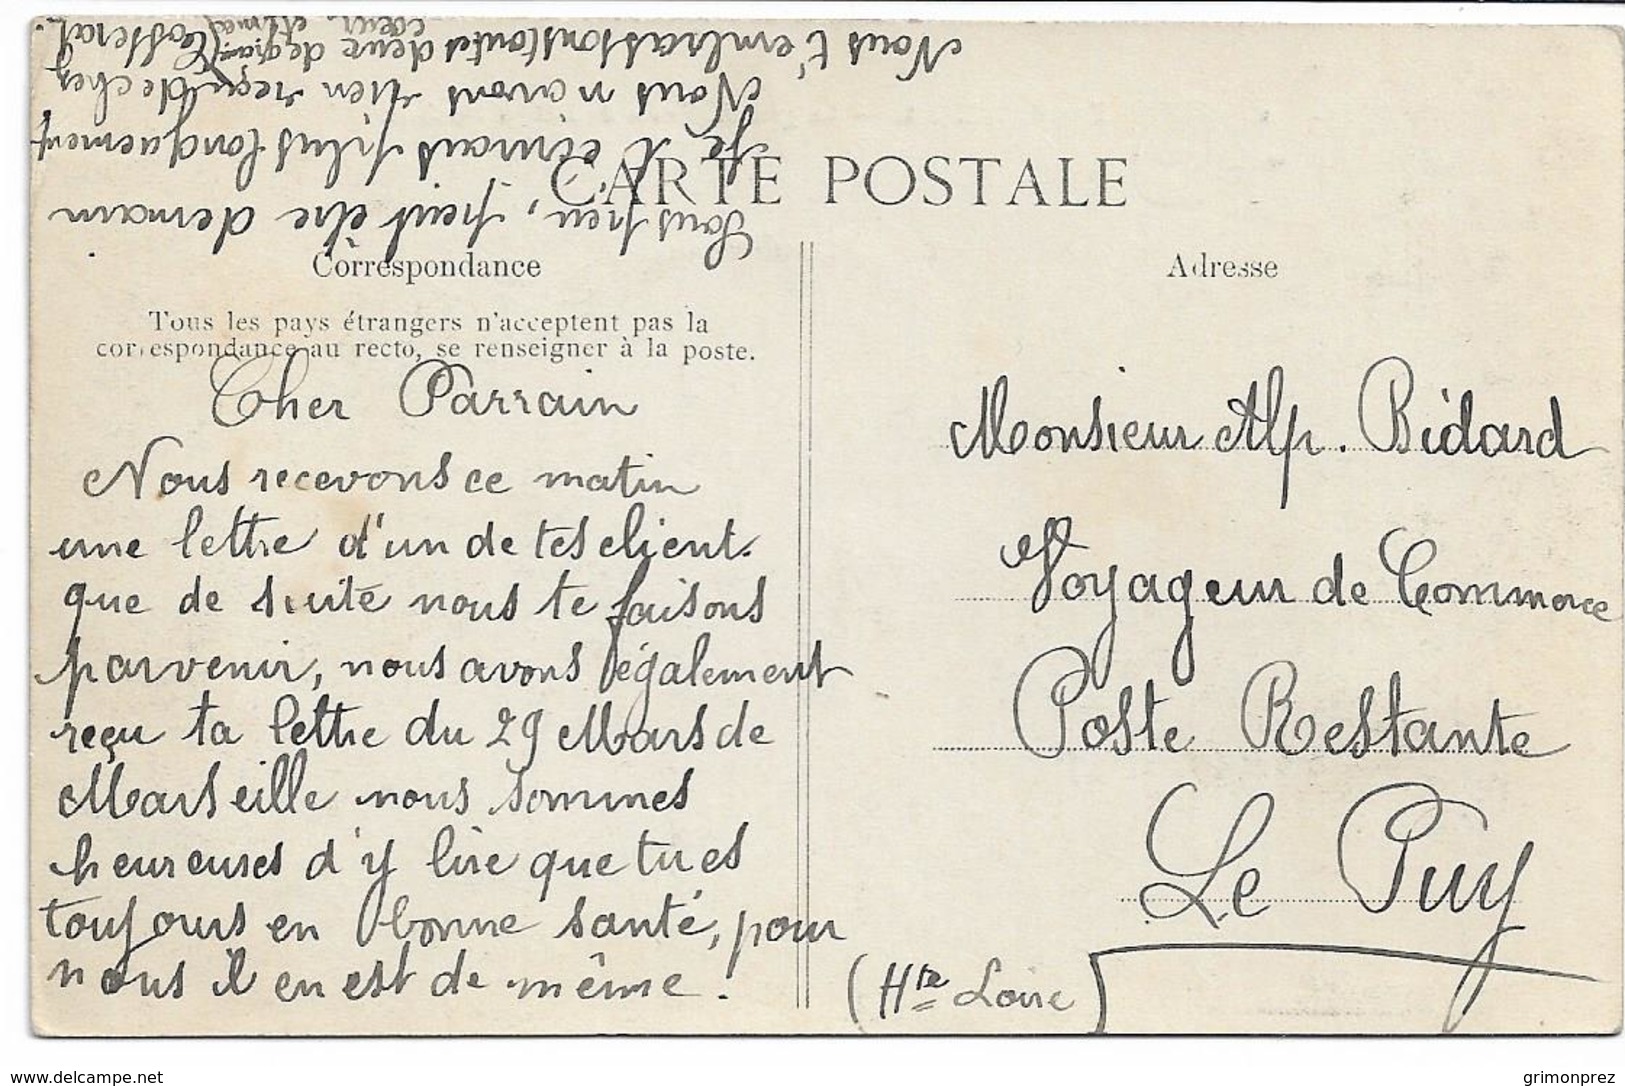 CARTE POSTALE
Correspondance
Tous les pays étrangers n'acceptent pas la
correspondance au recto, se renseigner à la poste.
Cher Parrain
Nous recevons ce matin
une lettre d'un de tes client.
que de suite nous te faisons
parvenir, nous avons également
reçu ta lettre du 29 Mars de
Marseille nous sommes
heureuses d'y lire que tu es
toujours en bonne santé, pour
nous il en est de même.
Sous peu, peut être demain
Je t'écrirais plus longuement
Nous n'avons rien reçu de chez
Nous t'embrassons toutes deux de
cœur
Adresse
Monsieur Alp. Bidard
Voyageur de Commerce
Poste Restante
Le Puy
(Hte Loire)
www.delcampe.net
grimonprez